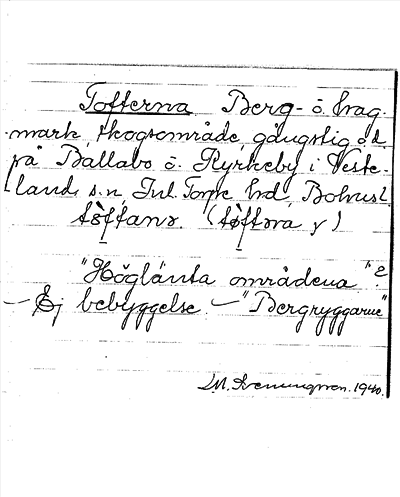 Tofterna Berg- o. hag-
mark, skogsområde, gångstig o.d.
på Ballabo o. Kyrkeby i Veste-
lands s:n, Inl. Torpe hd, Bohusl.
tòftanɘ. (tòftɘra y)
"Höglänta områdena"?
— Ej bebyggelse. — "Bergryggarne"
1940.